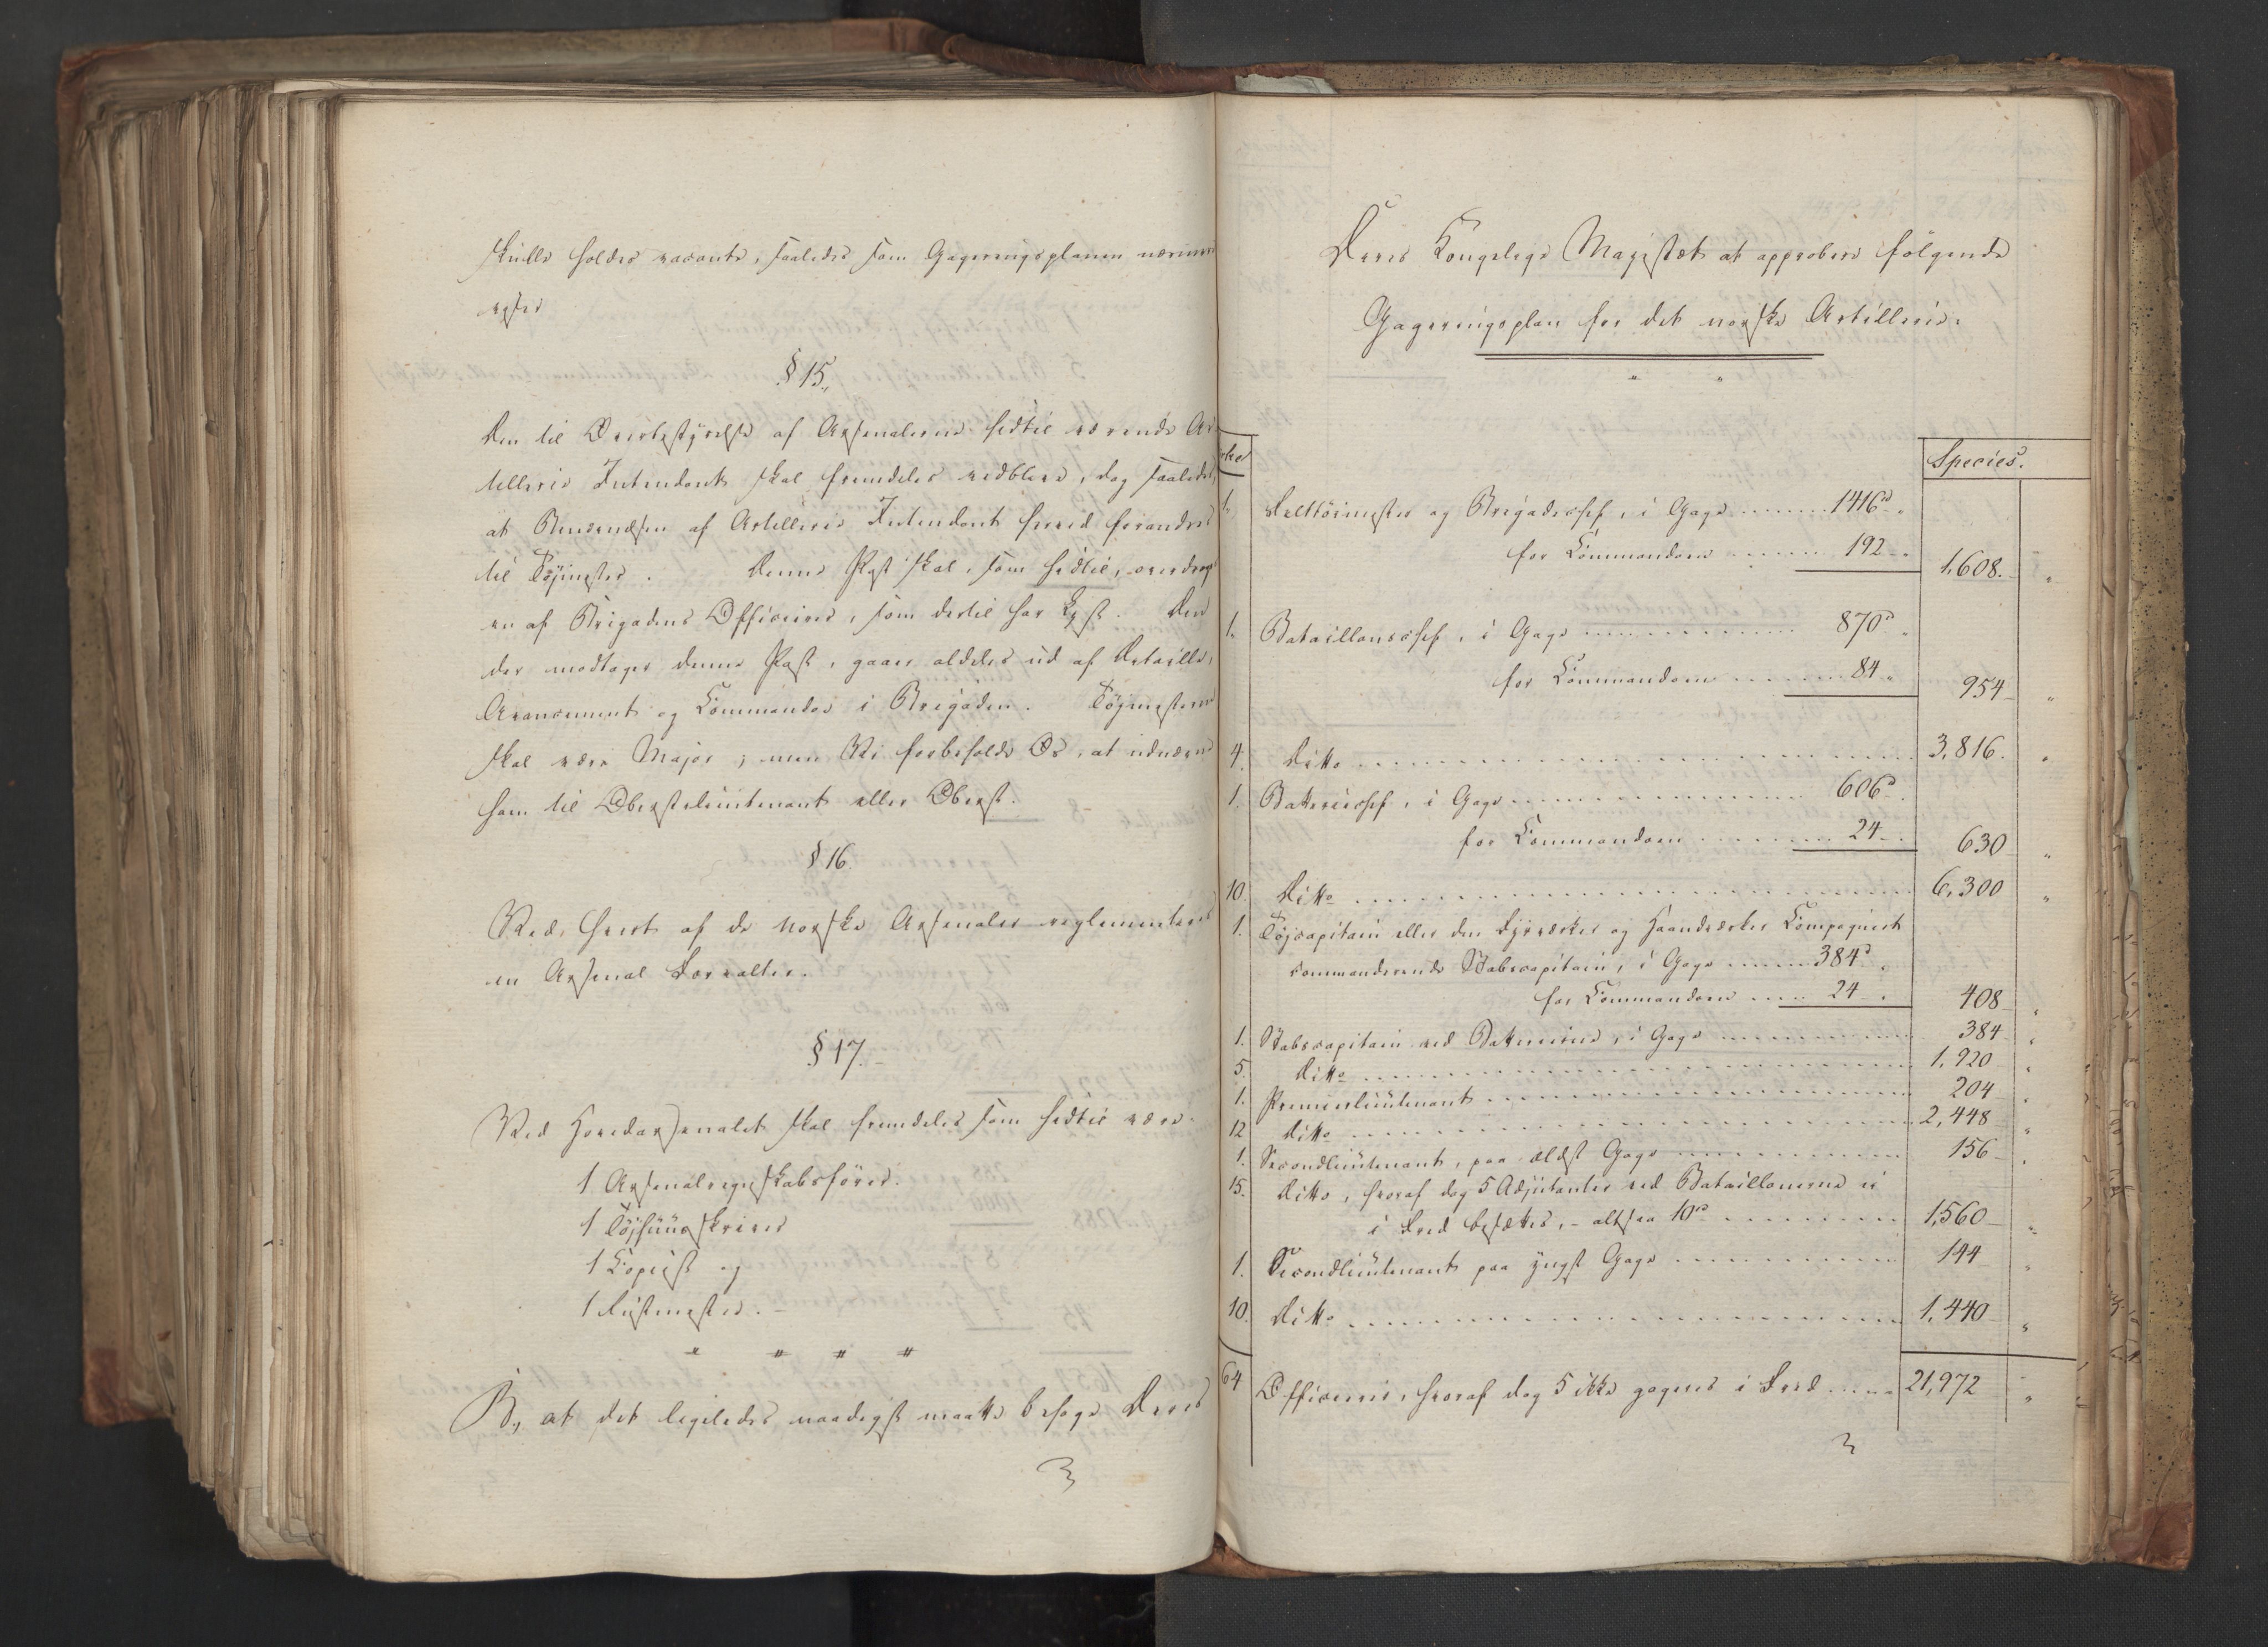 skulle holdes vacante, saaledes som Gageringsplanen nærmere
viser
§ 15.,
Den til Overbestyrelse af Arsenalerne hidtil værende Ar-
tillerie Intendent skal fremdeles vedblive, dog saaledes,
at Benævnelsen af Artillerie Intendent herved forandres
til Töjmester. Denne Post skal, som hidtil, overdrages
en af Brigadens Officierer, som dertil har Lyst. Den
der modtager denne Post, gaaer aldeles ud af Detaille,
Avancement og Commandoe i Brigaden. Töjmesteren
skal være Major; men Vi forbeholde Os, at udnævne
ham til Oberstelieutenant eller Oberst.
§ 16.
Ved hvert af de norske Arsenaler reglementeres
en Arsenal Forvalter.
§ 17.
Ved Hovedarsenalet skal fremdeles som hidtil være
1 Arsenalregnskabsförer.
1 Töjhuusskriver
1 Copiist og
1 Liistmester.
" " " "
B., at det ligeledes naadigst maatte behage Deres
Deres Kongelige Majestæt at approbere fölgende
Gageringsplan for det norske Artillerie:
Species.
1. Felttöimester og Brigadechef, i Gage 1416 "
for Commandoen 192 " 1,608. "
1. Bataillonschef, i Gage 870 "
for Commandoen 84 " 954 "
4. Ditto 3,816. "
1. Batteriechef, i Gage 606 "
for Commandoen 24 " 630 "
10. Ditto 6,300 "
1. Töjcapitain eller den Fyrværker og Haandværker Compagniet
commanderende Stabscapitain, i Gage 384 "
for Commandoen 24 " 408 "
1. Stabscapitain ved Batterierne, i Gage 384 "
5. Ditto 1,920 "
1. Premierlieutenant 204 "
12 Ditto 2,448 "
1. Secondlieutenant, paa ældst Gage 156 "
15. Ditto, hvoraf dog 5 Adjutanter ved Bataillonerne ei
i Fred besættes, - altsaa 10 1,560 "
1. Secondlieutenant paa yngst Gage 144 "
10. Ditto 1,440 "
64 Officierer, hvoraf dog 5 ikke gageres i Fred 21,972 "